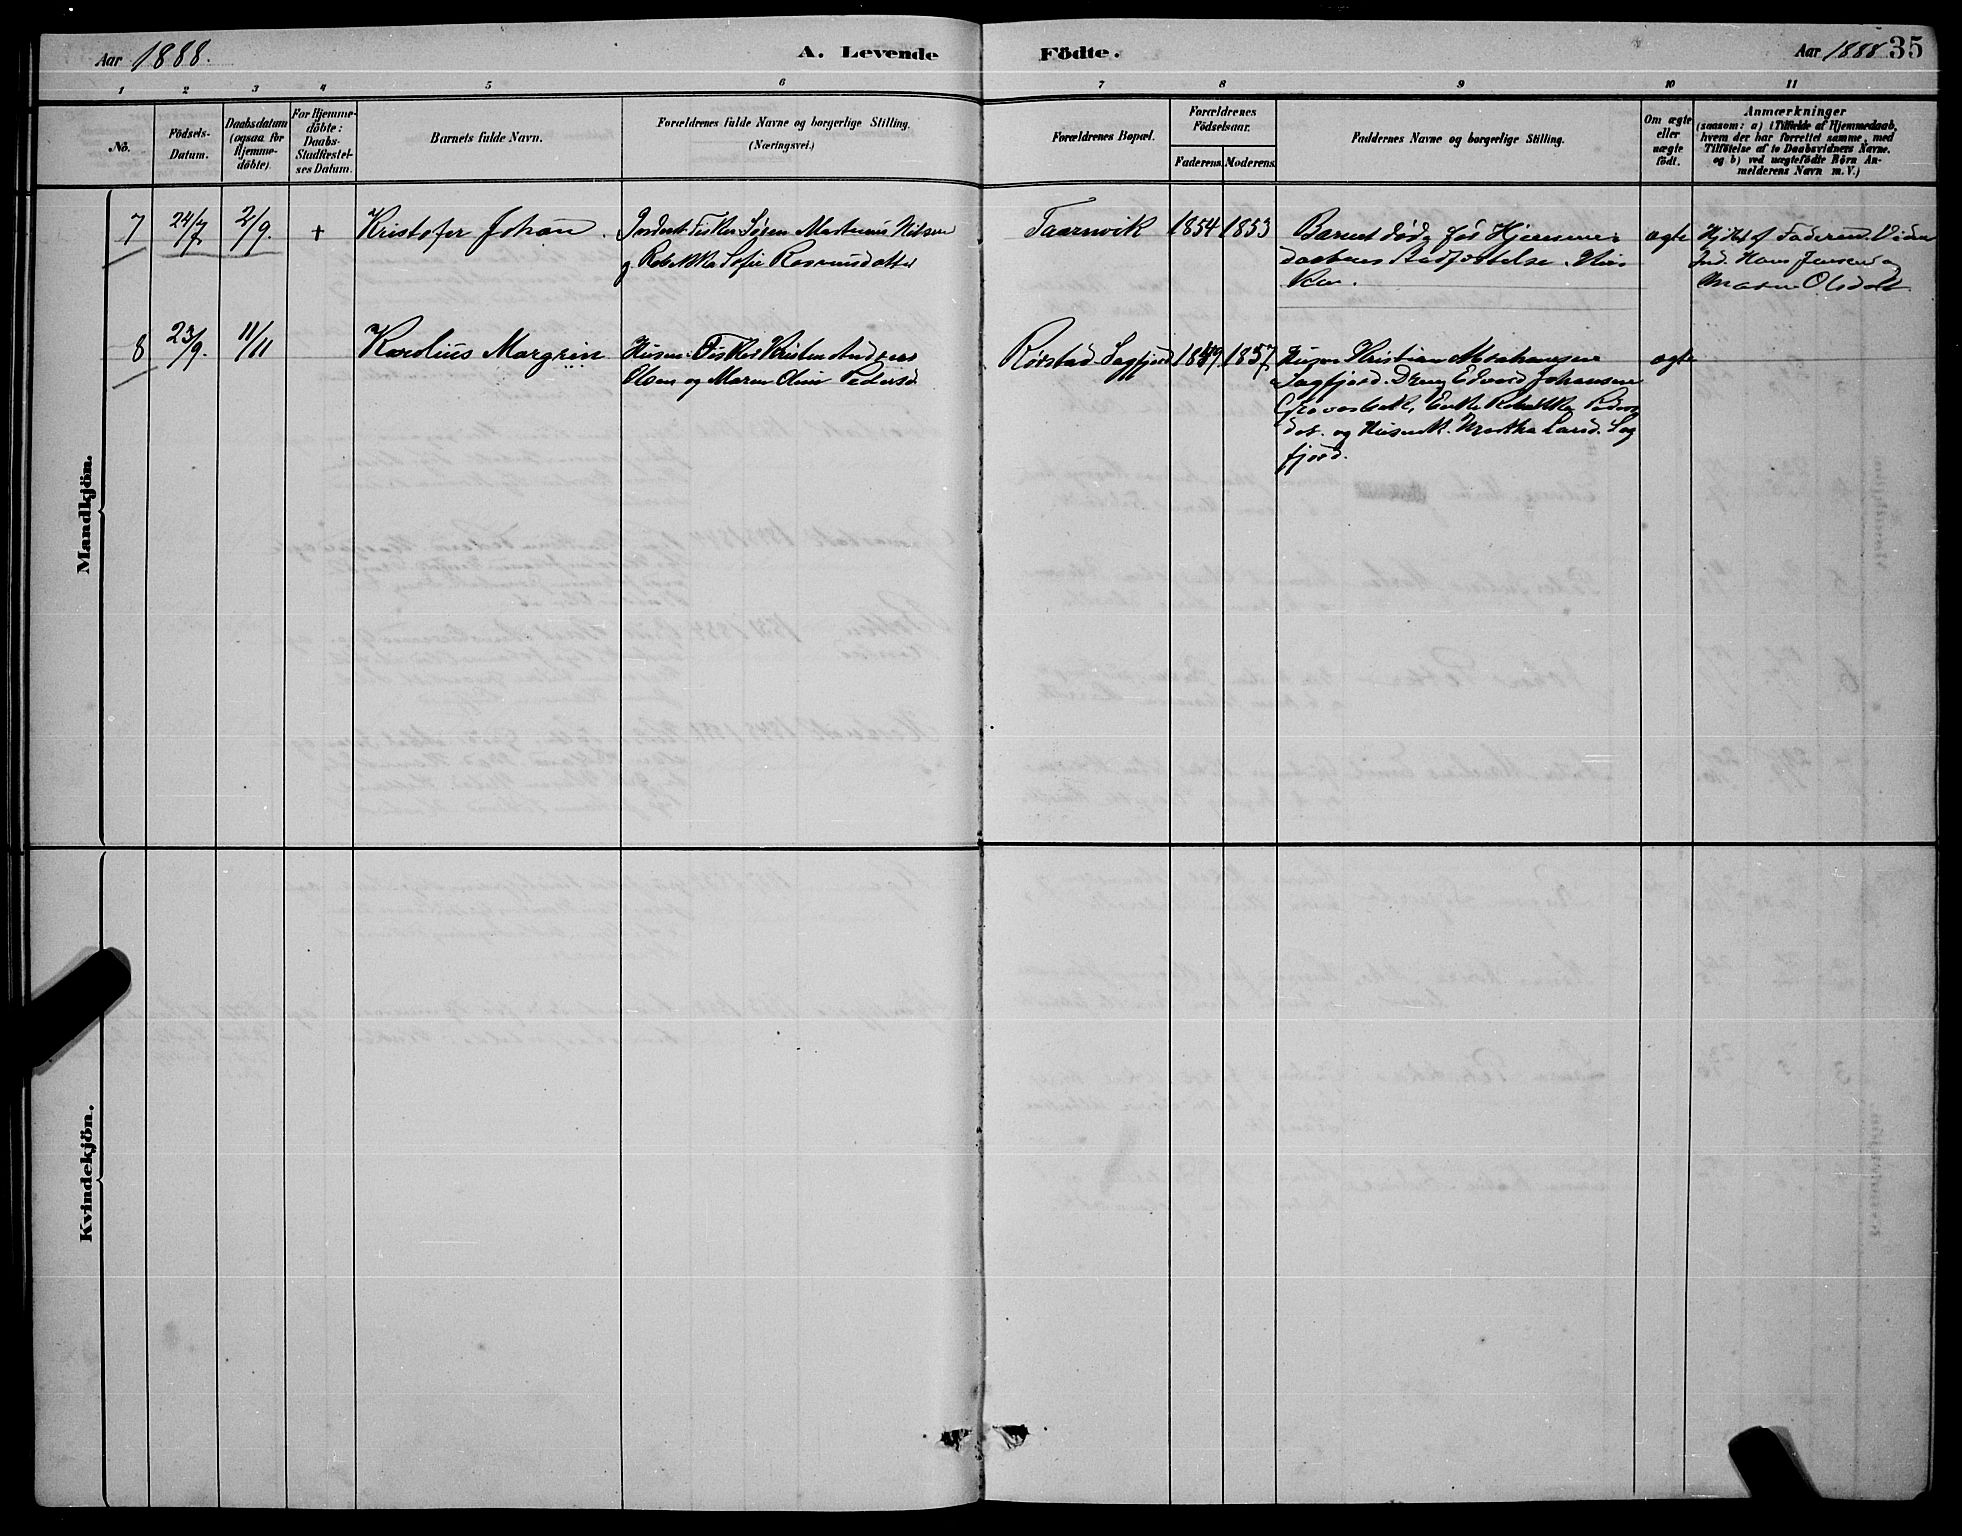 Aar 1888.
A. Levende
Födte.
Aar 1888 35
1 2 3 4 5 6 7 8 9 10 11
No.
Födsels-
Datum.
Daabsdatum
(ogsaa for
Hjemme-
döbte).
For Hjemme-
döbte:
Daabs-
Stadfæstel-
ses Datum.
Barnets fulde Navn.
Forældrenes fulde Navne og borgerlige Stilling.
(Næringsvei.)
Forældrenes Bopæl.
Forældrenes
Födselsaar.
Faderens. Moderens.
Faddernes Navne og borgerlige Stilling.
Om ægte
eller
uægte
födt.
Anmærkninger
(saasom: a) i Tilfælde af Hjemmedaab,
hvem der har forrettet samme, med
Tilföielse af to Daabsvidners Navne.
og b) ved uægtefödte Börn An-
melderens Navn m. V.)
Mandkjön.
7
24/7
2/9.
+
Kristofer Johan.
Fisker Søren Martinus Nilsen
og Rebekka Sofie Rasmusdatter
Taarnvik
1854
1853
Barnet døde før Hjemme-
daabens Stadfæstelse i Kir-
ken.
ægte
Hjdbt af Faderen. Vidn
Ind. Hans Jensen og
Maren Olsdatt
8
23/9.
11/11
Karolius Margrin
Husm. Fisker Kristen Andreas
Olsen og Maren Anna Pedersd
Rørstad Sagfjord
1849
1857
Husm Kristian Abrahamsen
Sagfjord. Dreng Edvard Johansen
Enke Rebekka Peders
dat. og Husmk. Martha Larsd. Sag
fjord.
ægte
Kvindekjön.